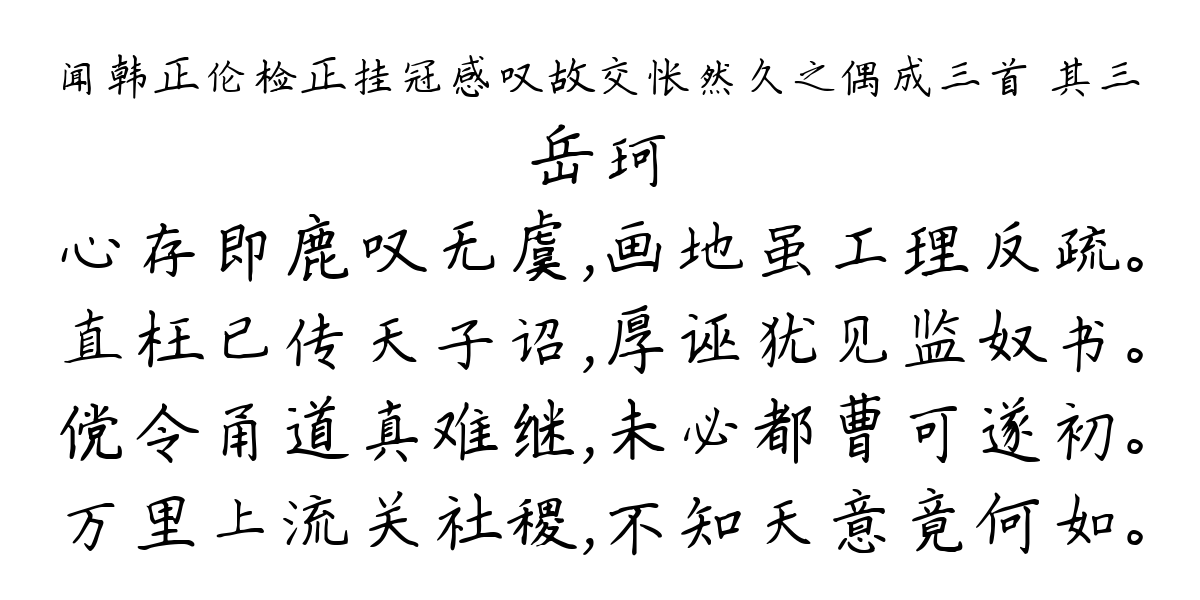 闻韩正伦检正挂冠感叹故交怅然久之偶成三首 其三
岳珂
心存即鹿叹无虞,画地虽工理反疏。
直枉已传天子诏,厚诬犹见监奴书。
傥令甬道真难继,未必都曹可遂初。
万里上流关社稷,不知天意竟何如。